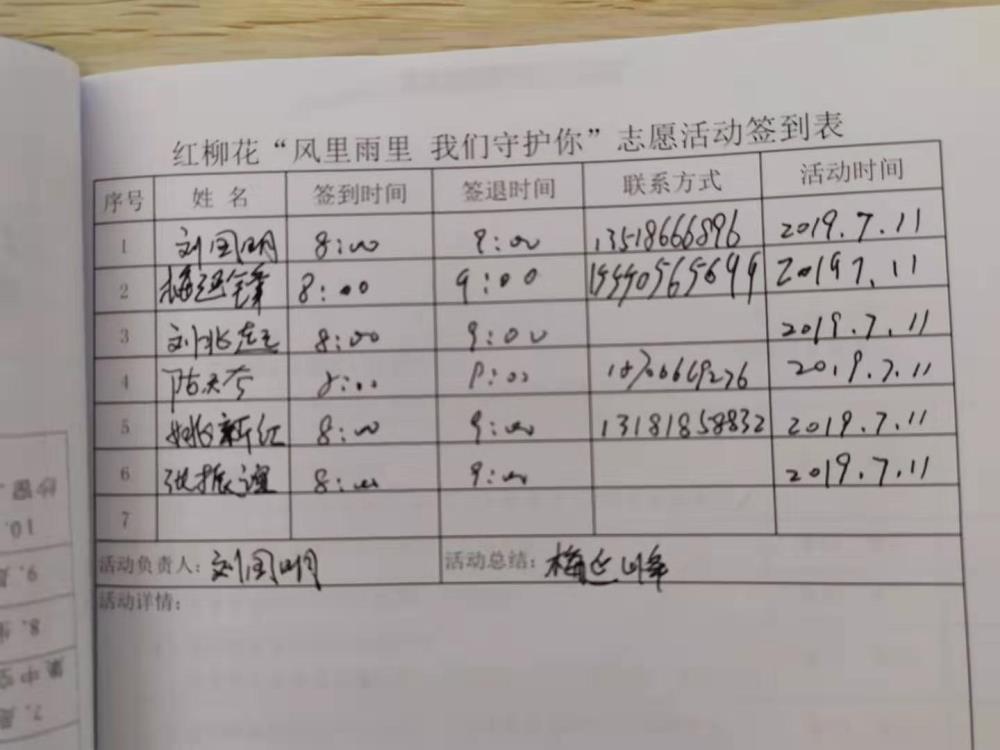 红柳花“风里雨里 我们守护你”志愿活动签到表
序号 姓 名 签到时间 签退时间 联系方式 活动时间
1 刘国明 8:00 9:00 13518666896 2019.7.11
2 8:00 9:00 2019 7.11
3 刘兆 8:00 9:00 2019.7.11
4 8:00 9:00 2019.7.11
5 姚新红 8:00 9:00 13181858832 2019.7.11
6 张振 8:00 9:00 2019.7.11
7
活动负责人：刘国明 活动总结：梅延峰
活动详情：
10.
9.
8.
7.